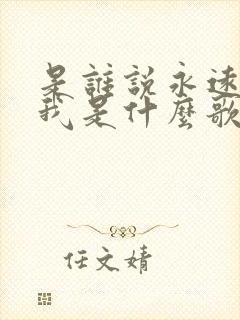 是誰說永遠
我是什麼歌
任文婧